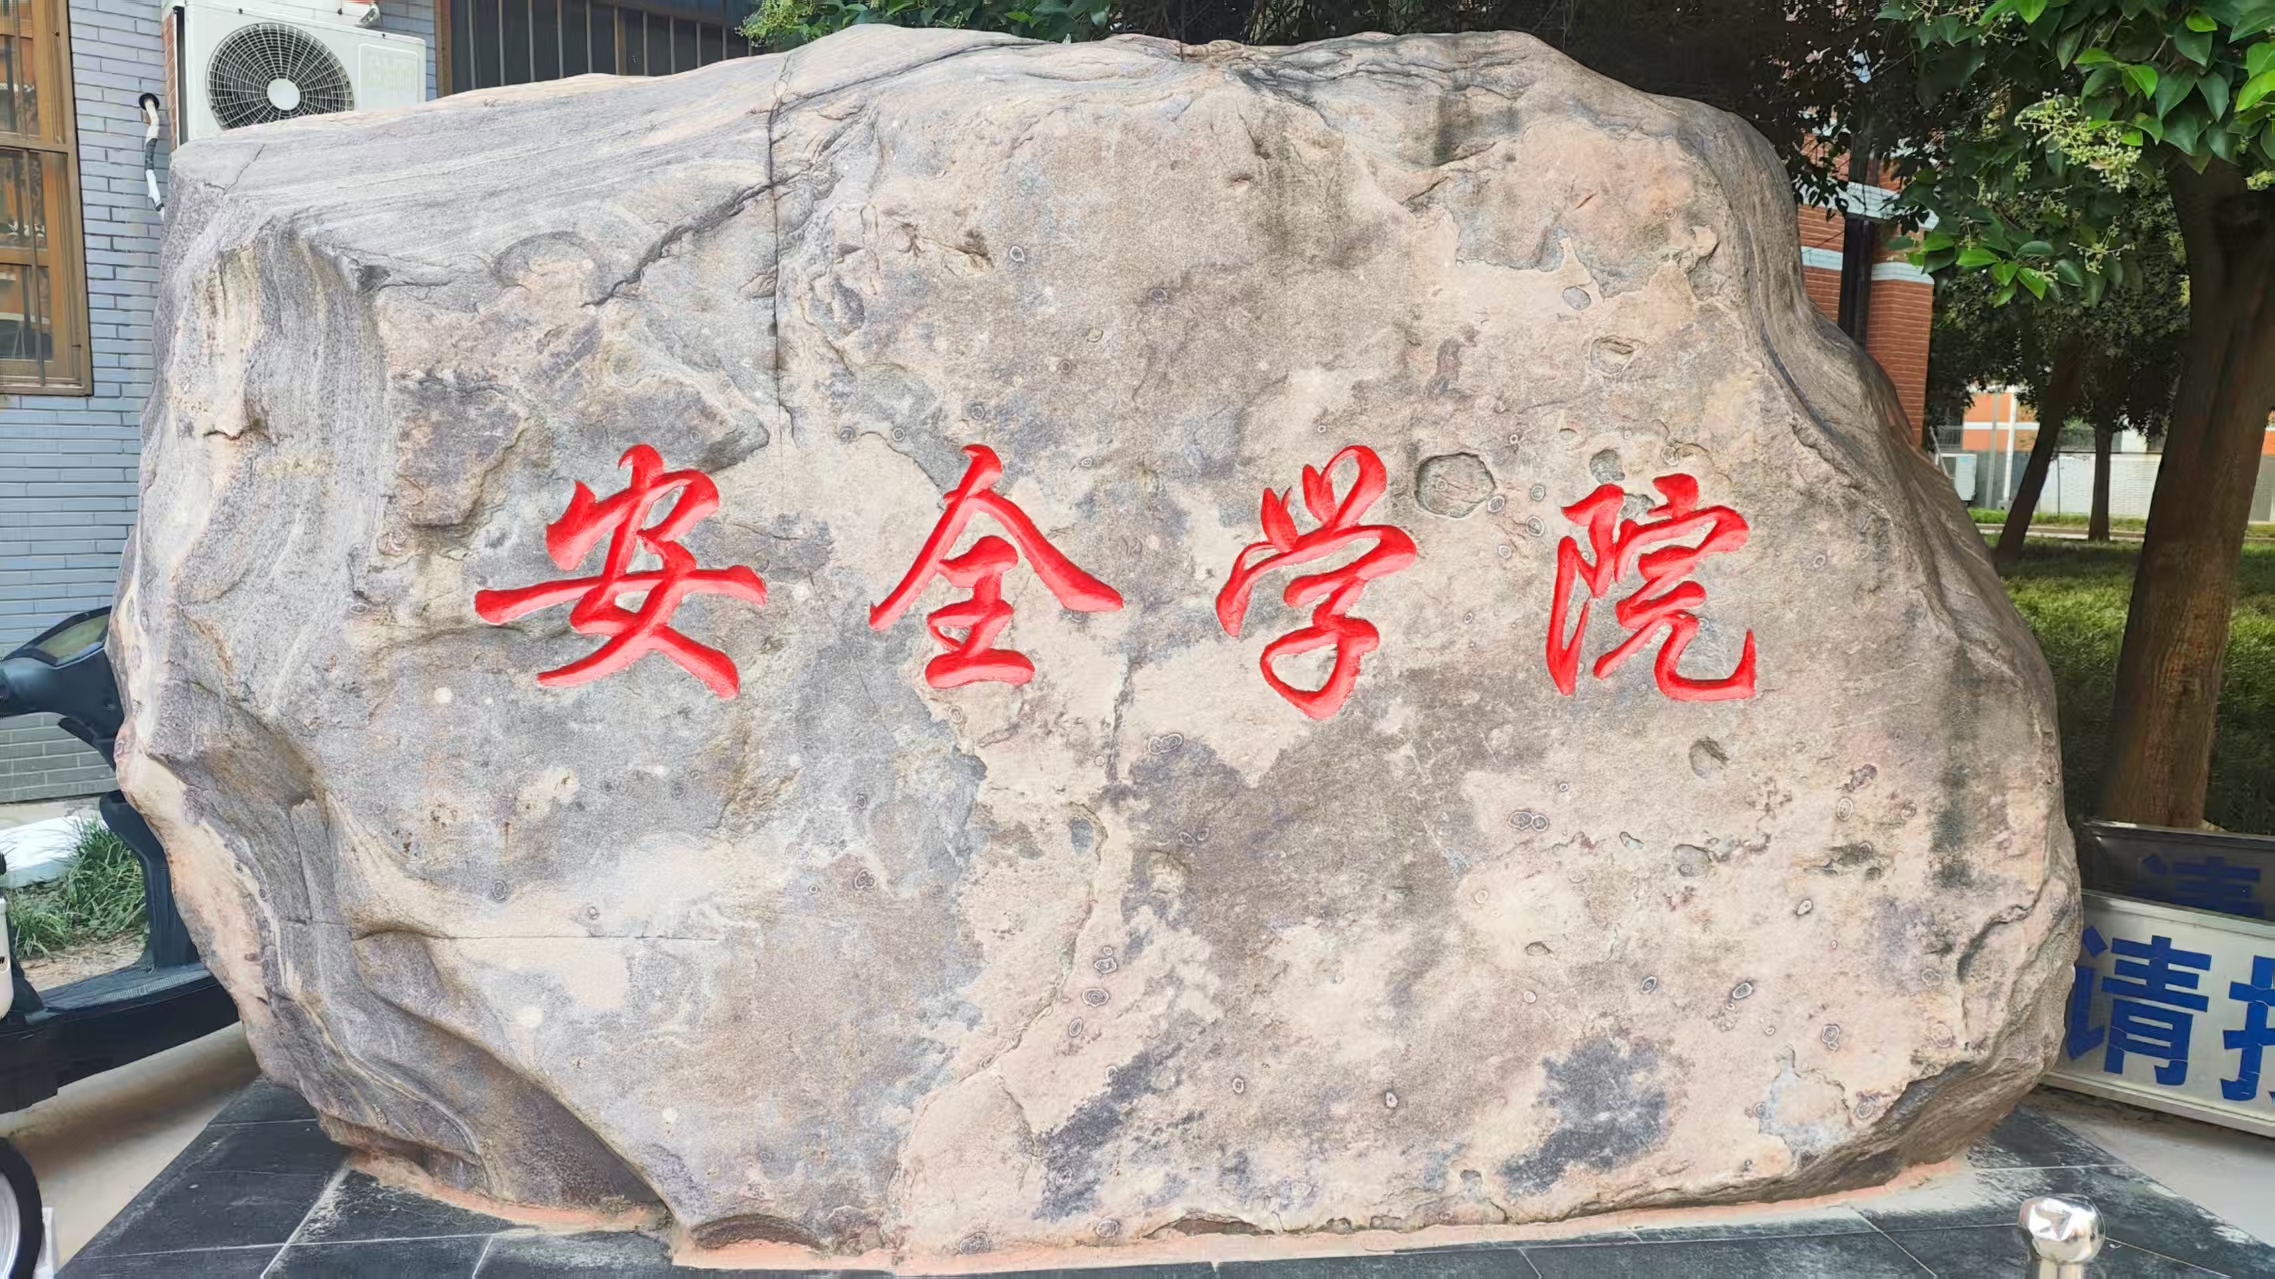 安全学院
请
请